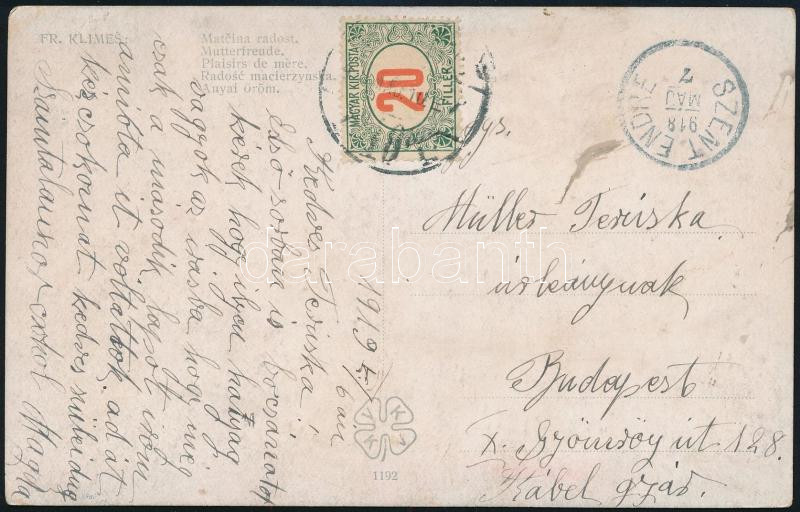 FR. KLIMEŠ:
Matčina radost.
Mutterfreude.
Plaisirs de mère.
Radość macierzynska.
Anyai öröm.
MAGYAR KIR. POSTA
20
FILLÉR
SZENTENDRE
918 MÁJ 7
1919 5/6 án
Kedves Terúska!
Első sorban is bocsánatot
kérek hogy ilyen hanyag
vagyok az irásba hogy még
csak a második lapot irom
amióta it voltatok adát
kézcsokomat kedves szüleidnek
csókol Magda
Müller Terúska
úrleánynak
Budapest
X. Gyömrői út 128.
Kábel gyár.
1192
darabanth